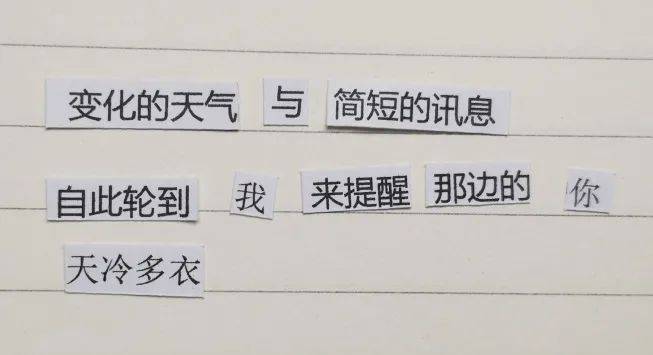 变化的天气 与 简短的讯息
自此轮到 我 来提醒 那边的 你
天冷多衣